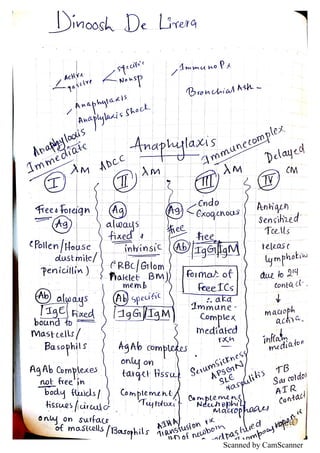 Dinoosh De Livera
Active
passive
Specific
Nonsp
Anaphylaxis
Anaphylaxis shock
Immuno Px
Bronchial Asth
Anaphylaxis
Anaphylaxis
Immediate
λM
ADCC
λM
Immunecomplex
λM
Delayed
CM
I
II
III
IV
Free & Foreign
(Pollen/House
dustmite/
penicillin)
Ab always
IgE Fixed
bound to
Mastcells/
Basophils
AgAb Complexes
not free in
body fluids/
tissues/
only on surface
of mastcells/Basophils
Ag
always
fixed &
intrinsic
(RBC/Glom
Platelet BM)
memb
Ab specific
IgG/IgM
AgAb complexes
only on
target tissue
Complement/
AIHA
Transfusion rx
of newborn
Ag
Endo
Exogenous
free
free
Ab
IgG/IgM
Format of
Free ICs
∴ aka
Immune-
Complex
mediated
rxn
Serumsickness
APSGN
SLE
Vasculitis
Complement
Neutrophils
Macrophages
Antigen
Sensitized
Tcells
release
lymphokine
due to
contact.
↓
macroph
activa.
↓
inflam
mediator
TB
Sarcoidos
AIR
Contact
Scanned by CamScanner